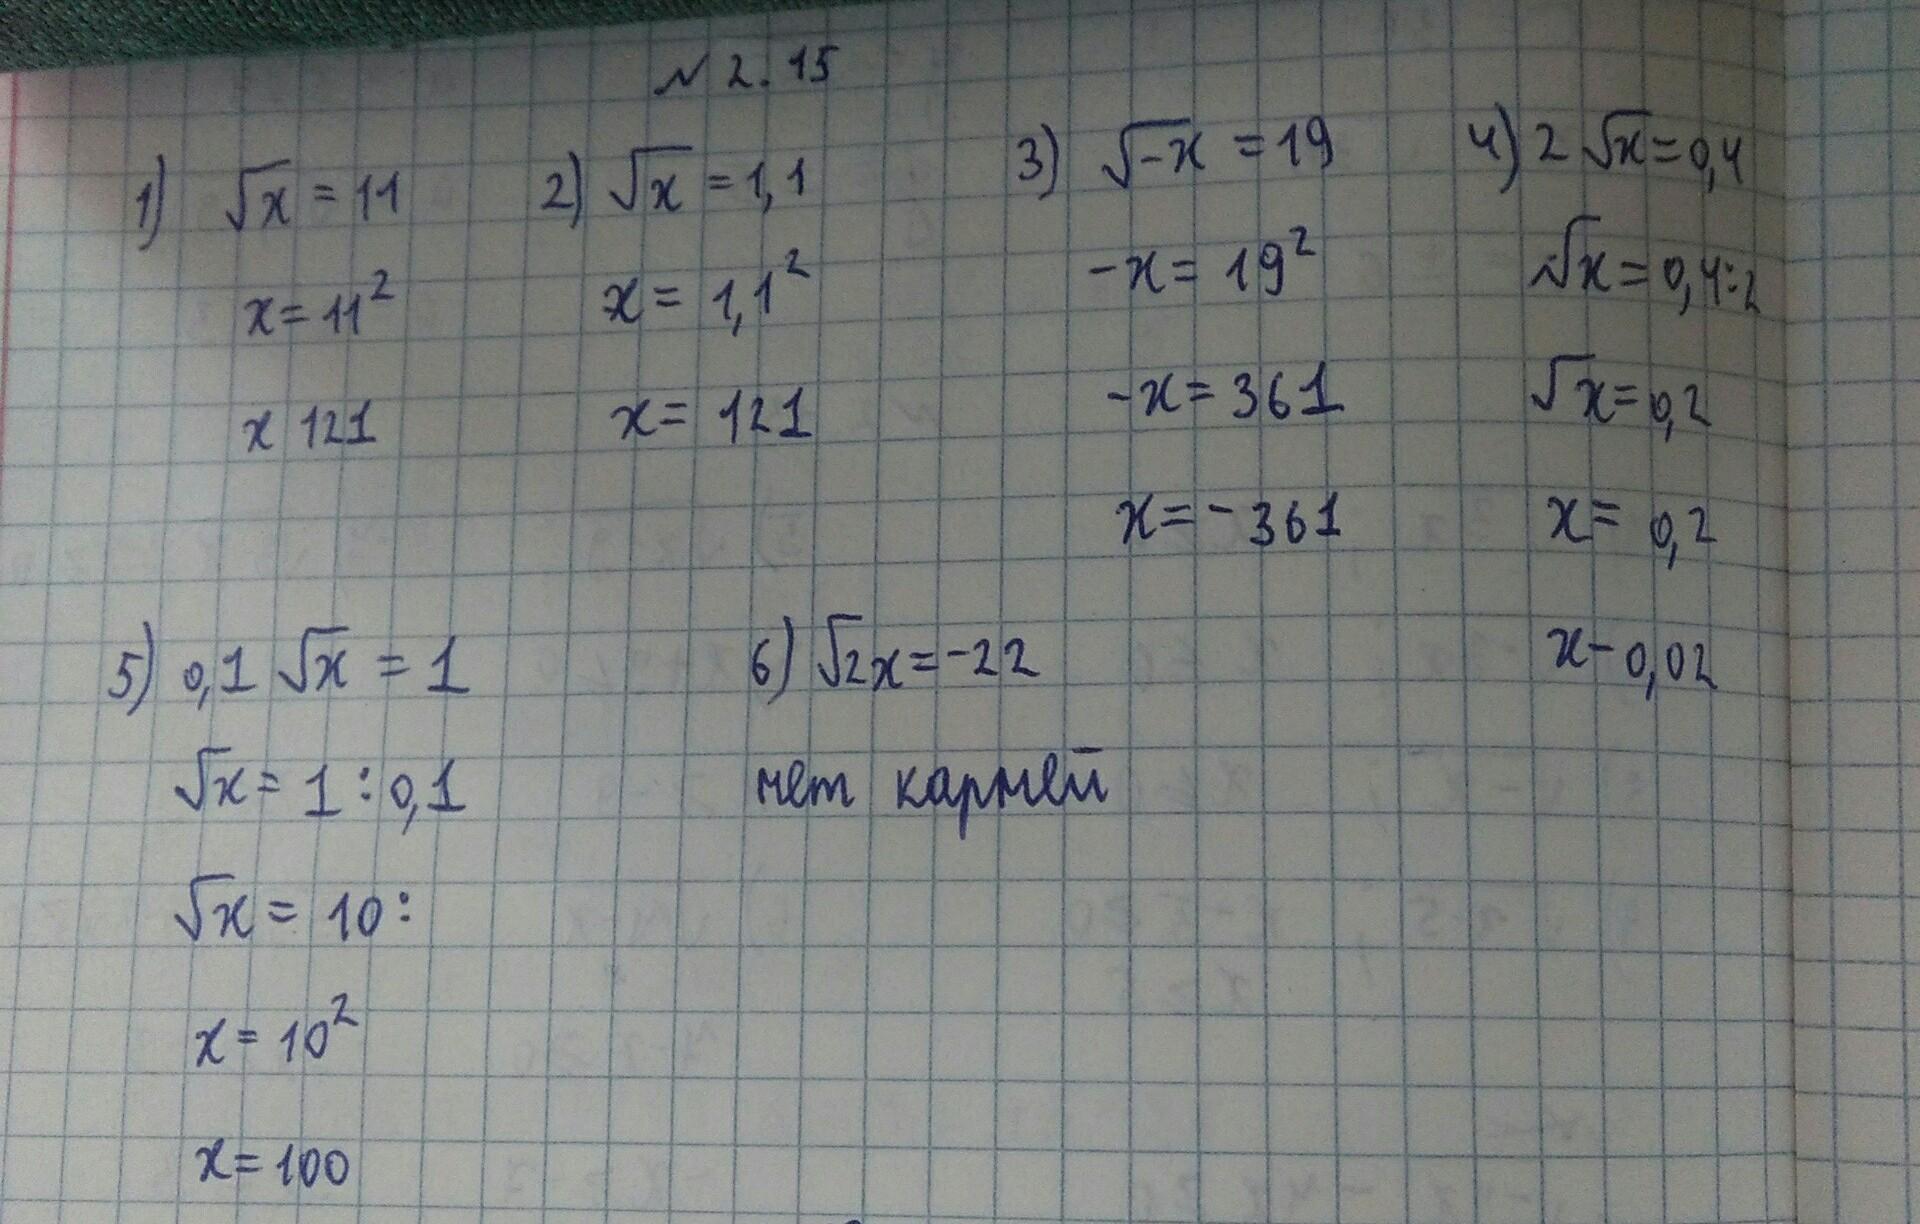 № 2.15
1) √x = 11
x = 11²
x 121
2) √x = 1,1
x = 1,1²
x = 121
3) √-x = 19
-x = 19²
-x = 361
x = -361
4) 2 √x = 0,4
√x = 0,4:2
√x = 0,2
x = 0,2
x - 0,02
5) 0,1 √x = 1
√x = 1 : 0,1
√x = 10 :
x = 10²
x = 100
6) √2x = -22
нет карней